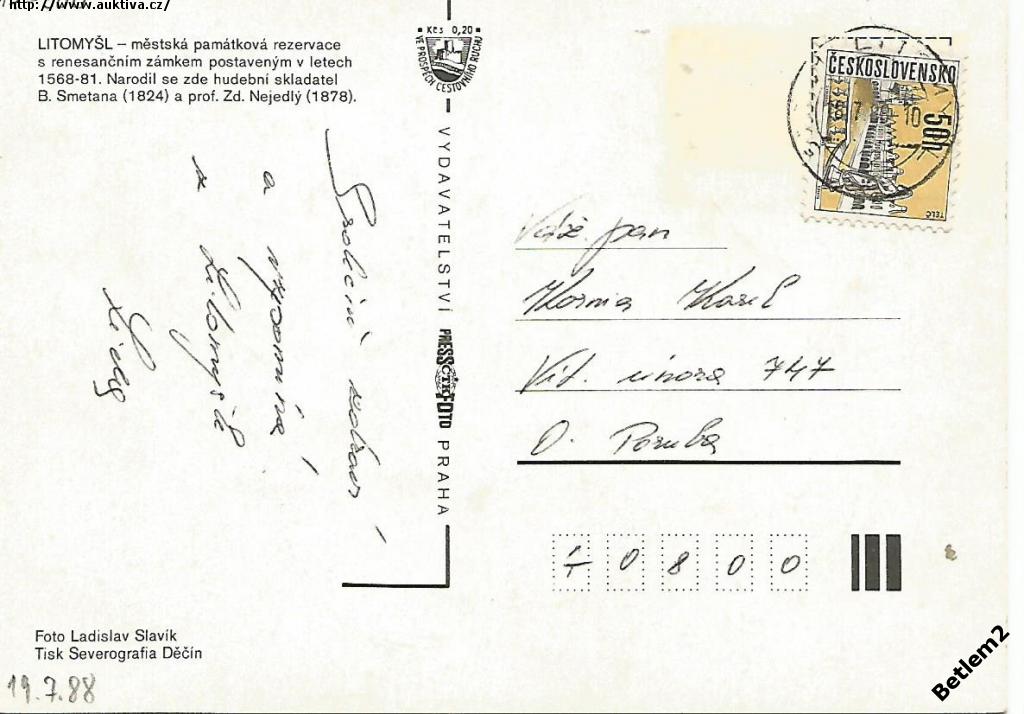 http://www.auktiva.cz/
LITOMYŠL – městská památková rezervace
s renesančním zámkem postaveným v letech
1568-81. Narodil se zde hudební skladatel
B. Smetana (1824) a prof. Zd. Nejedlý (1878).
Kčs 0,20
VE PROSPĚCH CESTOVNÍHO RUCHU
VYDAVATELSTVÍ PRESSFOTO PRAHA
ČTK
ČESKOSLOVENSKO
50h
TELČ
Srdečně zdraví
a vzpomíná
z Litomyšle
Váž. pan
Karel
Vít. února 747
O. Poruba
70800
Foto Ladislav Slavík
Tisk Severografia Děčín
19.7.88
Betlem2